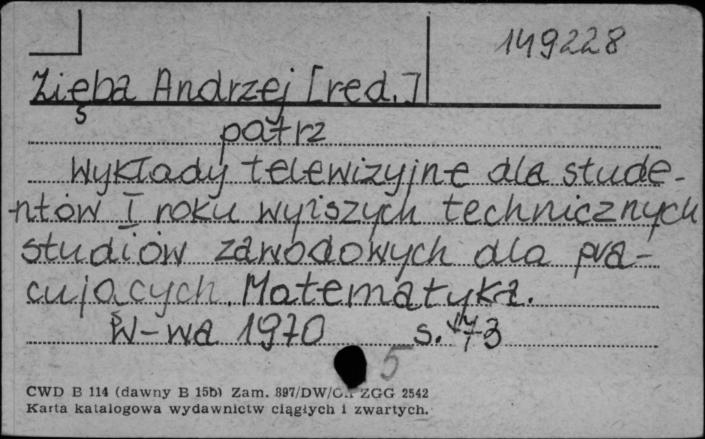 149228
Zięba Andrzej [red.]
patrz
Wykłady telewizyjne dla stude-
ntów I roku wyższych technicznych
studiów zawodowych dla pra-
cujących. Matematyka.
W-wa 1970 s. 473
5
CWD B 114 (dawny B 15b) Zam. 897/DW/ ZGG 2542
Karta katalogowa wydawnictw ciągłych i zwartych.